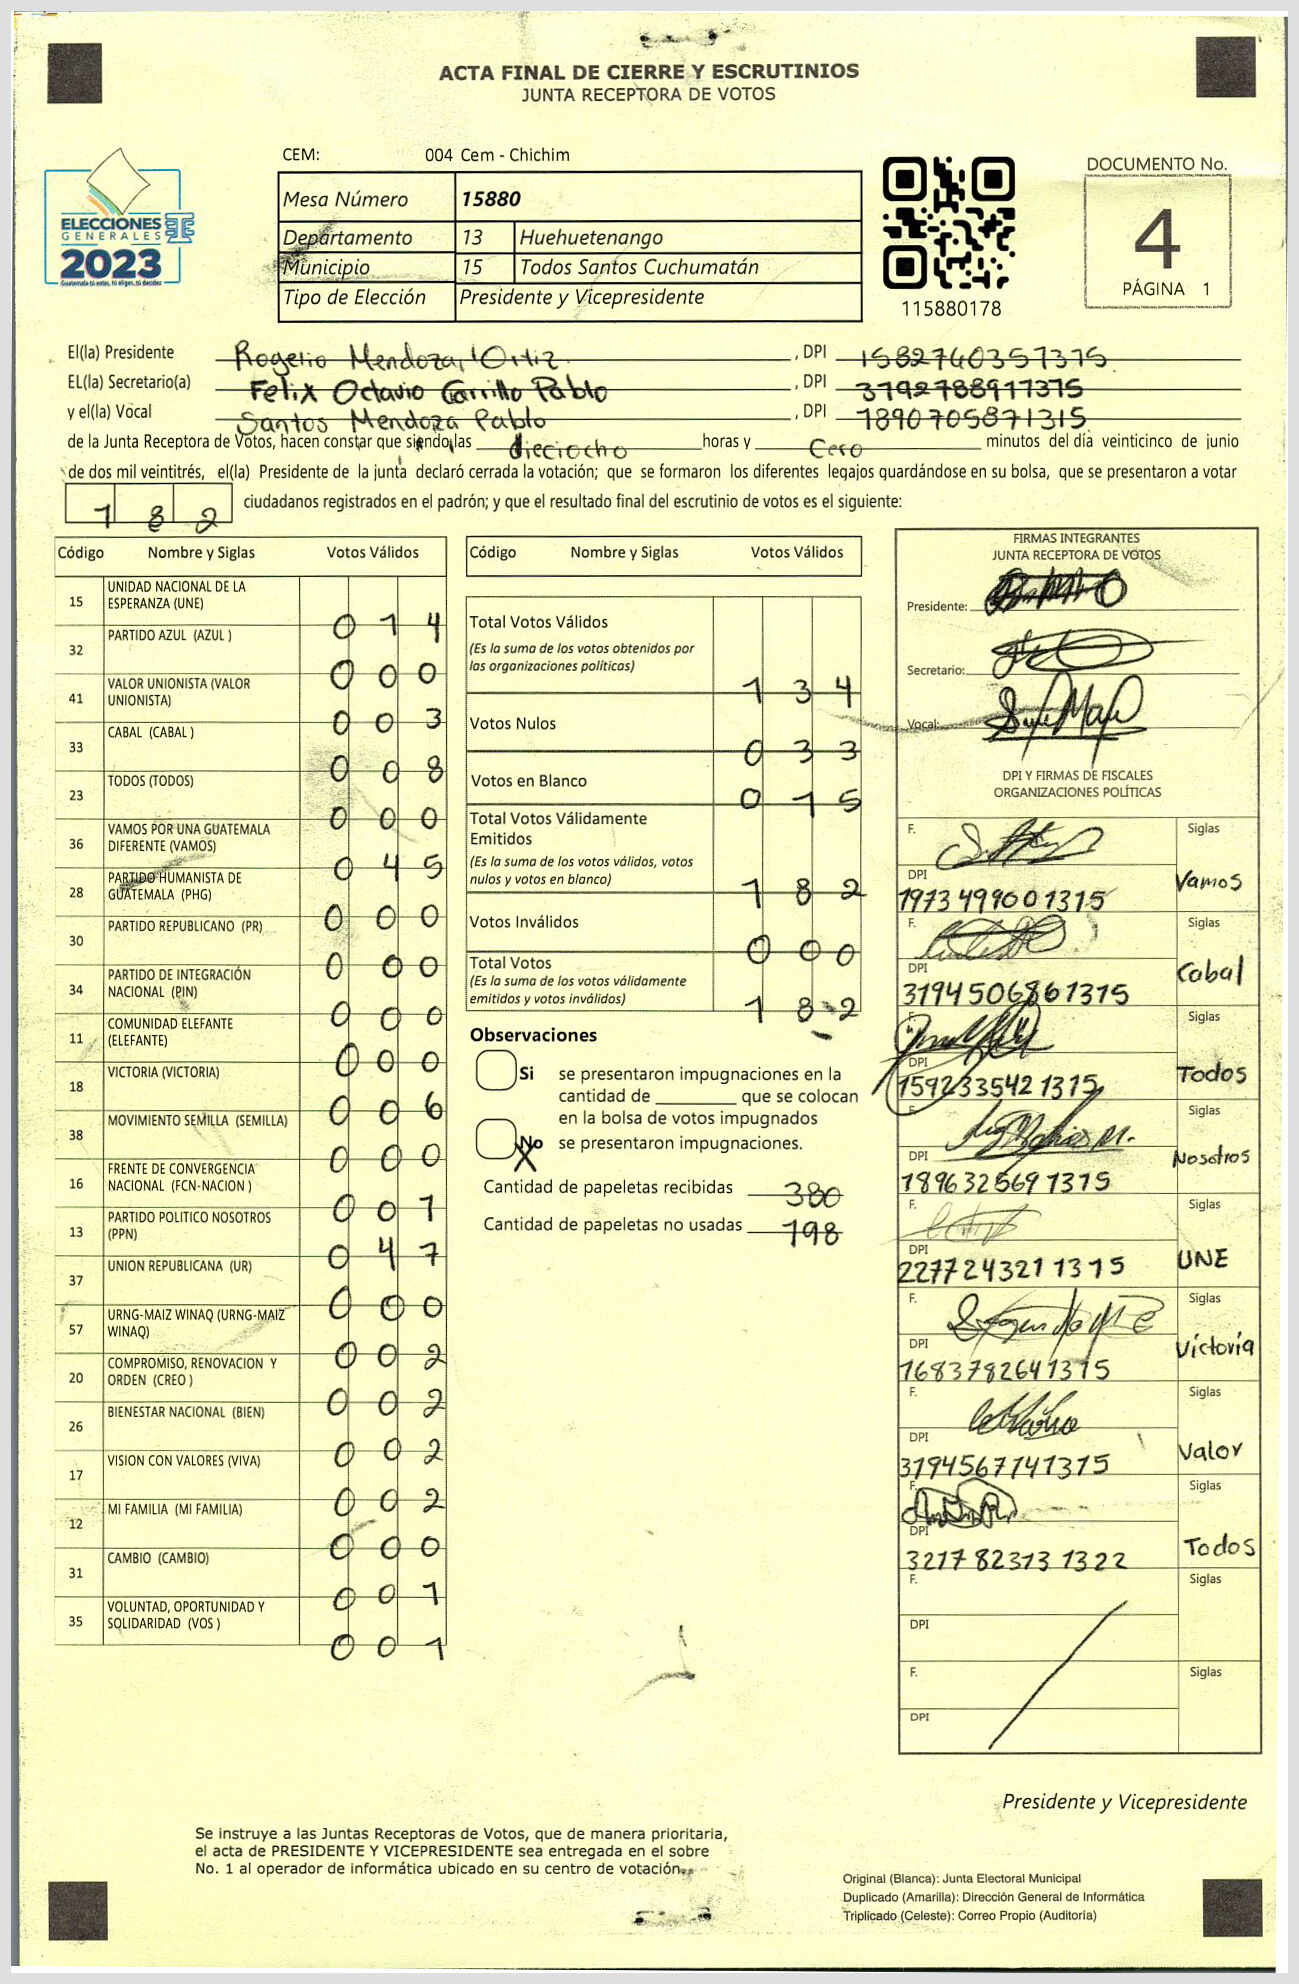 ACTA FINAL DE CIERRE Y ESCRUTINIOS
JUNTA RECEPTORA DE VOTOS
CEM: 004 Cem - Chichim
ELECCIONES
GENERALES
2023
Guatemala tú votes, tú eliges, tú decides
Mesa Número 15880
Departamento 13 Huehuetenango
Municipio 15 Todos Santos Cuchumatán
Tipo de Elección Presidente y Vicepresidente
115880178
DOCUMENTO No.
4
PÁGINA 1
El(la) Presidente Rogelio Mendoza Ortiz, DPI 1582740357315
EL(la) Secretario(a) Felix Octavio Carrillo Pablo, DPI 3192788911315
y el(la) Vocal Santos Mendoza Pablo, DPI 1890705871315
de la Junta Receptora de Votos, hacen constar que siendo las dieciocho horas y Cero minutos del día veinticinco de junio
de dos mil veintitrés, el(la) Presidente de la junta declaró cerrada la votación; que se formaron los diferentes legajos quardándose en su bolsa, que se presentaron a votar
182 ciudadanos registrados en el padrón; y que el resultado final del escrutinio de votos es el siguiente:
Código Nombre y Siglas Votos Válidos
15 UNIDAD NACIONAL DE LA ESPERANZA (UNE) 014
32 PARTIDO AZUL (AZUL ) 000
41 VALOR UNIONISTA (VALOR UNIONISTA) 003
33 CABAL (CABAL ) 008
23 TODOS (TODOS) 000
36 VAMOS POR UNA GUATEMALA DIFERENTE (VAMOS) 045
28 PARTIDO HUMANISTA DE GUATEMALA (PHG) 000
30 PARTIDO REPUBLICANO (PR) 000
34 PARTIDO DE INTEGRACIÓN NACIONAL (PIN) 000
11 COMUNIDAD ELEFANTE (ELEFANTE) 000
18 VICTORIA (VICTORIA) 006
38 MOVIMIENTO SEMILLA (SEMILLA) 000
16 FRENTE DE CONVERGENCIA NACIONAL (FCN-NACION ) 001
13 PARTIDO POLITICO NOSOTROS (PPN) 047
37 UNION REPUBLICANA (UR) 000
57 URNG-MAIZ WINAQ (URNG-MAIZ WINAQ) 002
20 COMPROMISO, RENOVACION Y ORDEN (CREO ) 002
26 BIENESTAR NACIONAL (BIEN) 002
17 VISION CON VALORES (VIVA) 002
12 MI FAMILIA (MI FAMILIA) 000
31 CAMBIO (CAMBIO) 001
35 VOLUNTAD, OPORTUNIDAD Y SOLIDARIDAD (VOS ) 001
Código Nombre y Siglas Votos Válidos
Total Votos Válidos 134
(Es la suma de los votos obtenidos por las organizaciones políticas)
Votos Nulos 033
Votos en Blanco 015
Total Votos Válidamente Emitidos 182
(Es la suma de los votos válidos, votos nulos y votos en blanco)
Votos Inválidos 000
Total Votos 182
(Es la suma de los votos válidamente emitidos y votos inválidos)
Observaciones
Si se presentaron impugnaciones en la
cantidad de ________ que se colocan
en la bolsa de votos impugnados
No X se presentaron impugnaciones.
Cantidad de papeletas recibidas 380
Cantidad de papeletas no usadas 198
FIRMAS INTEGRANTES
JUNTA RECEPTORA DE VOTOS
Presidente:
Secretario:
Vocal:
DPI Y FIRMAS DE FISCALES
ORGANIZACIONES POLÍTICAS
F. Siglas Vamos
DPI 1973499001315
F. Siglas Cabal
DPI 3194506861315
F. Siglas Todos
DPI 1592335421315
F. Siglas Nosotros
DPI 1896325691315
F. Siglas UNE
DPI 2277243211315
F. Siglas Victoria
DPI 1683782641315
F. Siglas Valor
DPI 3194567141315
F. Siglas Todos
DPI 3217823131322
F. Siglas
DPI
F. Siglas
DPI
Presidente y Vicepresidente
Se instruye a las Juntas Receptoras de Votos, que de manera prioritaria,
el acta de PRESIDENTE Y VICEPRESIDENTE sea entregada en el sobre
No. 1 al operador de informática ubicado en su centro de votación.
Original (Blanca): Junta Electoral Municipal
Duplicado (Amarilla): Dirección General de Informática
Triplicado (Celeste): Correo Propio (Auditoría)